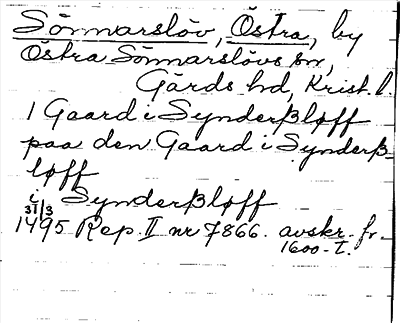 Sönnarslöv, Östra, by
Östra Sönnarslövs sn,
Gärds hd, Krist. l.
1 Gaard i Synderßløff
paa den Gaard i Synderß-
løff
i Synderßløff
31/3
1495 Rep. II nr 7866. avskr. fr.
1600-t.